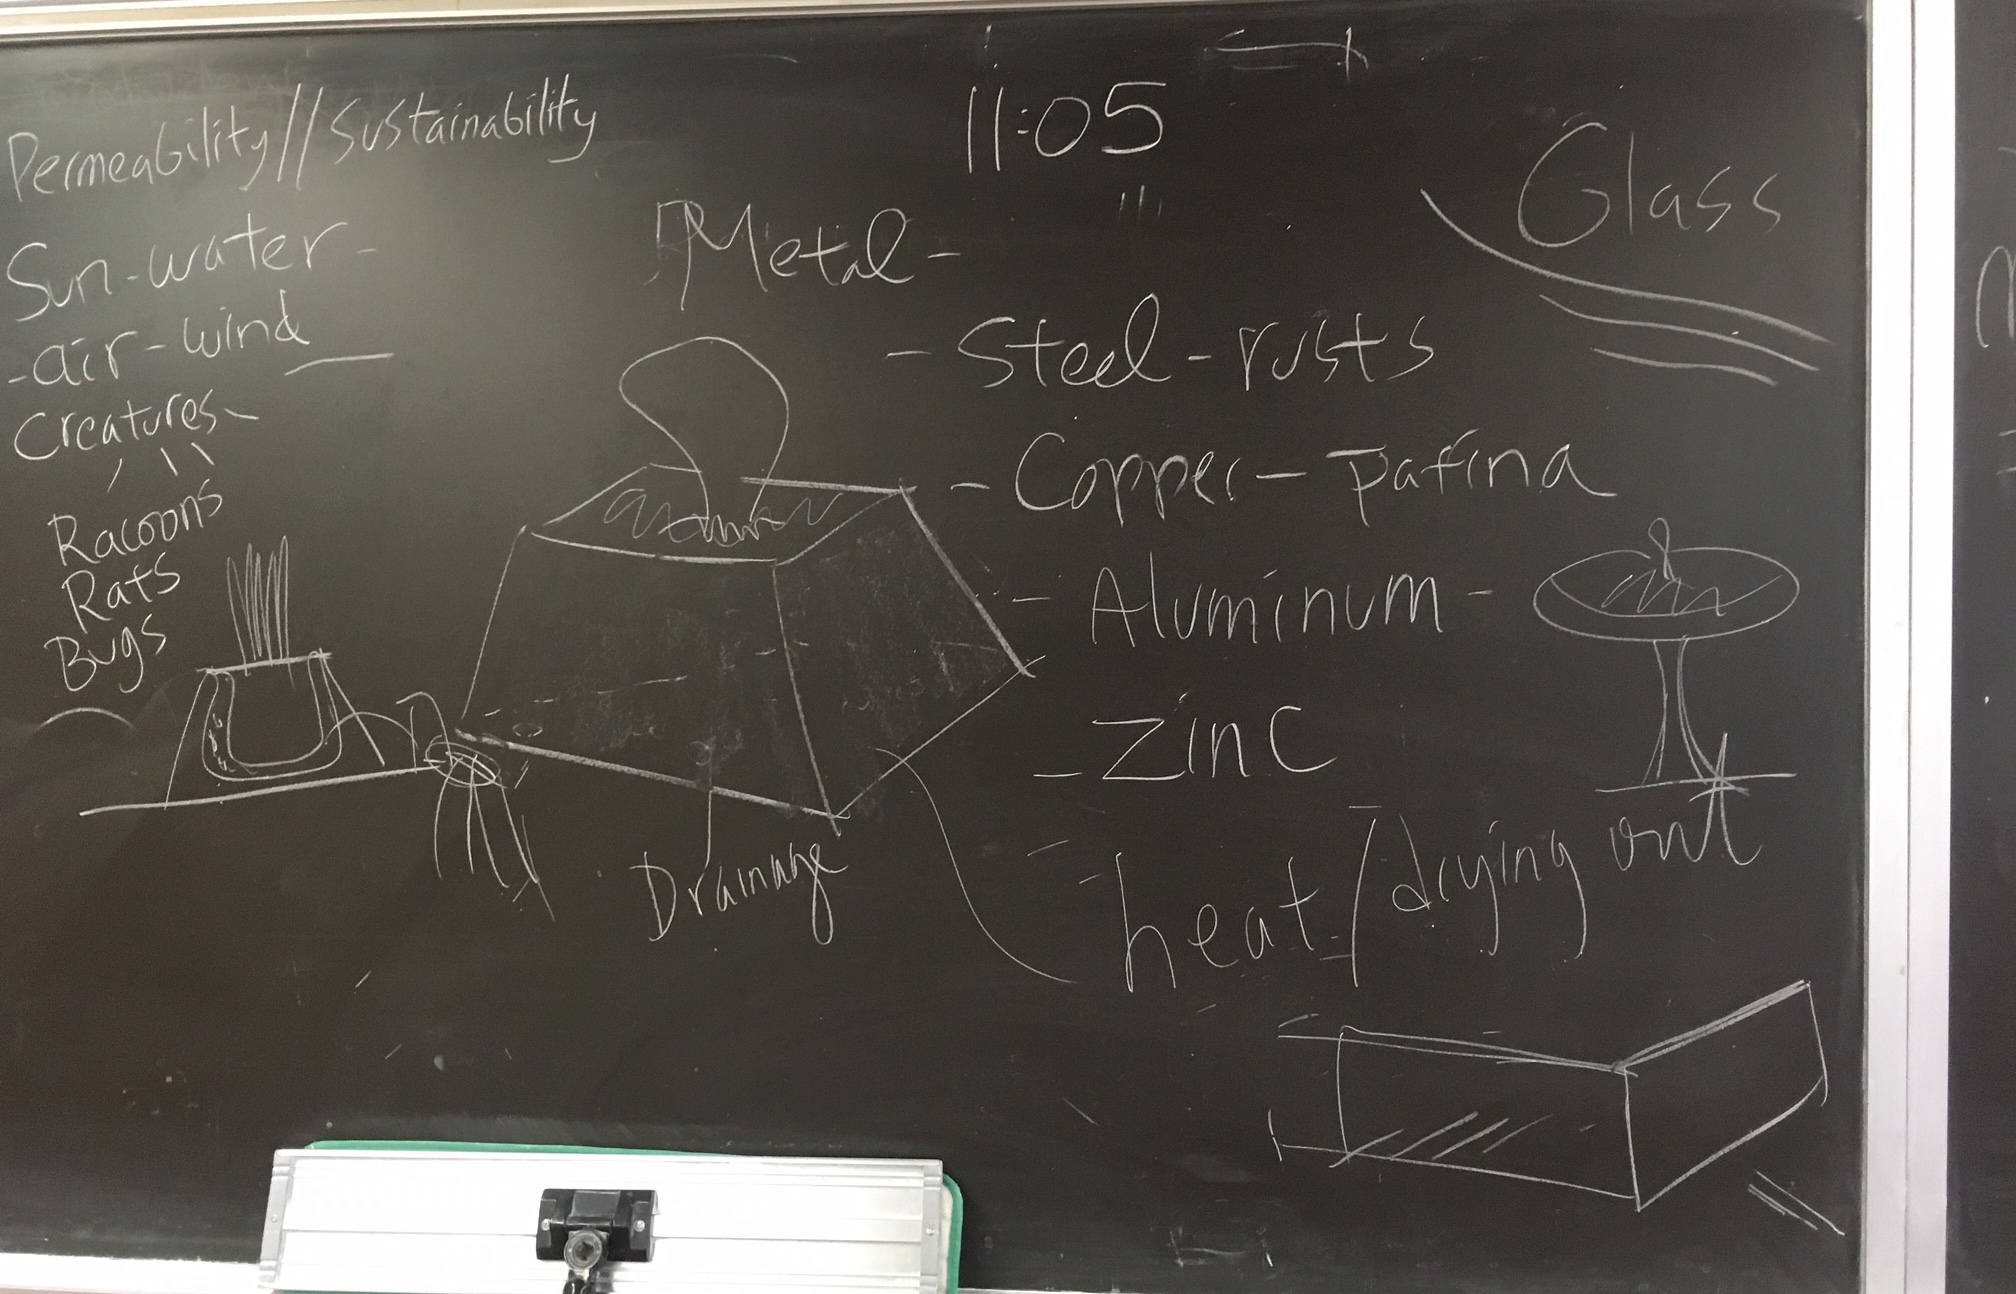 Permeability//Sustainability
Sun-water-
-air-wind
Creatures-
Racoons
Rats
Bugs
11:05
Metal-
- Steel-rusts
- Copper-patina
- Aluminum-
- Zinc
- heat/drying out
Drainage
Glass